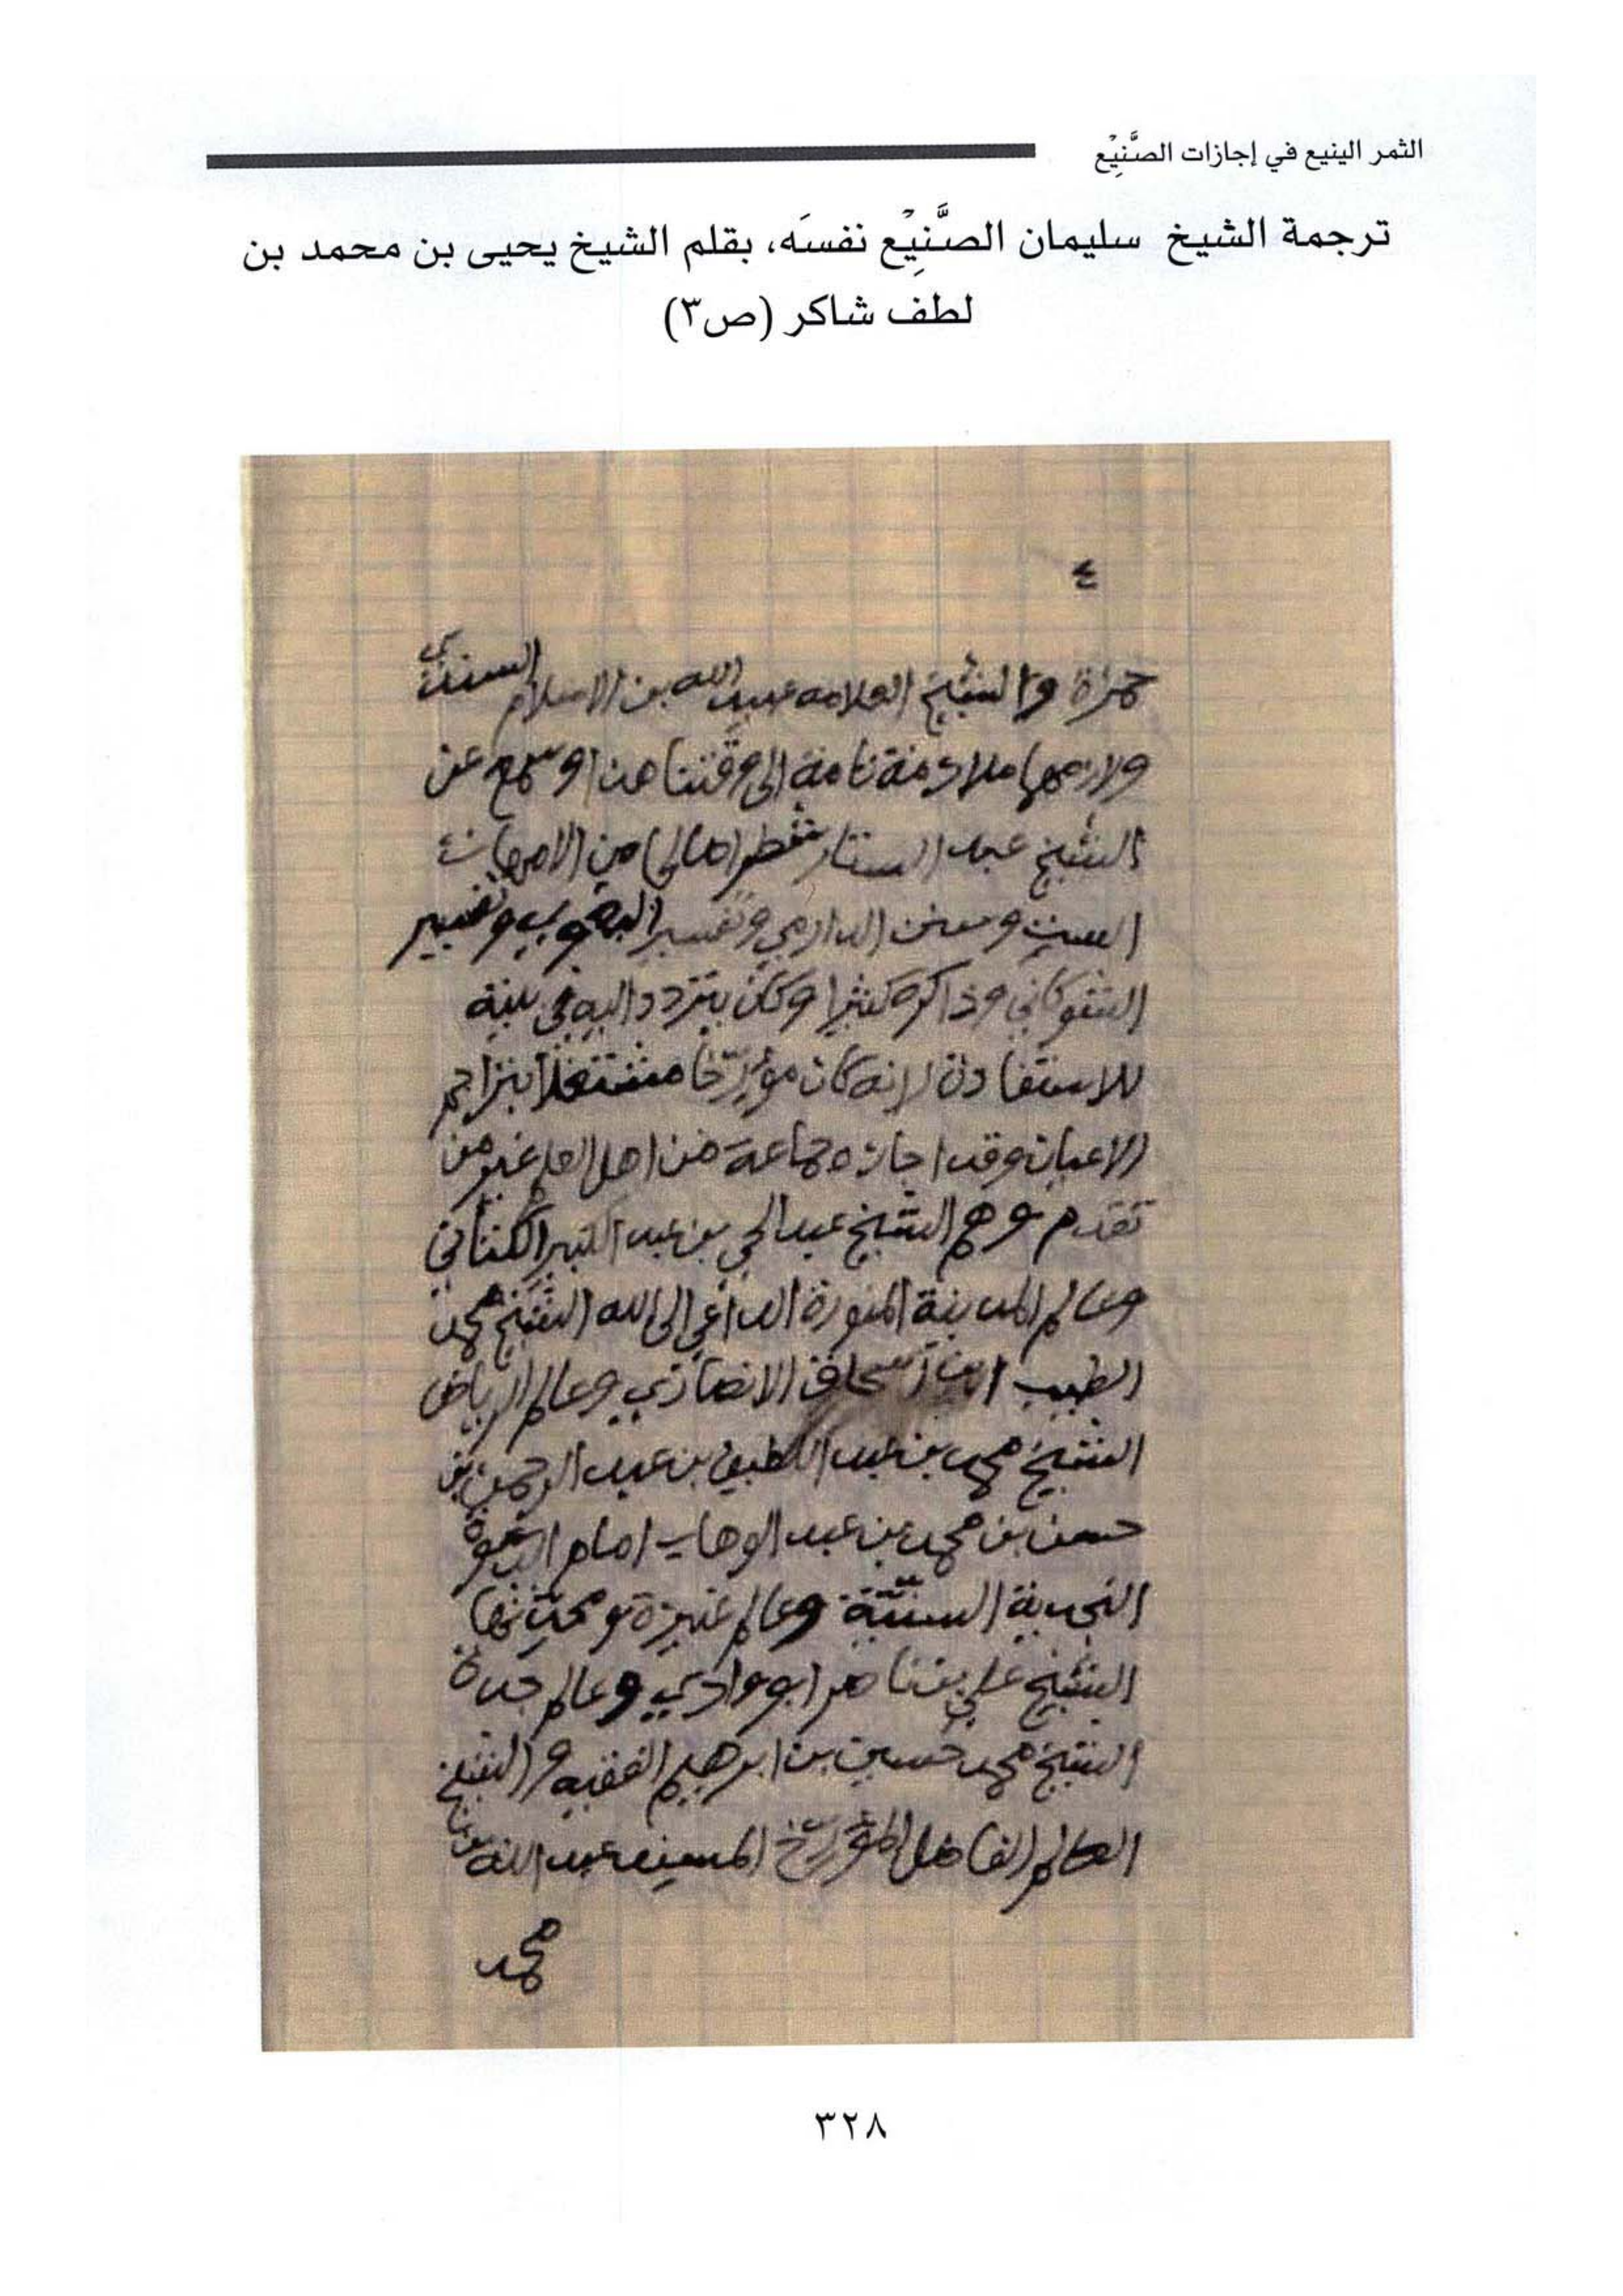 الثمر الينيع في إجازات الصَّنِيْع
ترجمة الشيخ سليمان الصَّنِيْع نفسَه، بقلم الشيخ يحيى بن محمد بن
لطف شاكر (ص٣)
٤
حمزة والشيخ العلامه عبيد الله بن الاسلام السندي
ولازمهما ملازمة تامة الى وقتنا هذا وسمع عن
الشيخ عبد الستار من الامهات
الست وسنن الدارمي وتفسير البغوي وتفسير
الشوكاني وذاكره كثيرا وكان يتردد اليه في بيته
للاستفادة لانه كان مؤرّخا مشتغلا بتراجم
الاعيان وقد اجازه جماعة من اهل العلم غير من
تقدم وهم الشيخ عبد الحي بن عبد الكبير الكتاني
وعالم المدينة المنورة الداعي الى الله الشيخ محمد
الطيب ابن اسحاق الانصاري وعالم الرياض
الشيخ محمد بن عبد اللطيف بن عبد الرحمن بن
حسن بن محمد بن عبد الوهاب امام الدعوة
النجدية السنيّة وعالم عنيزة ومحدّثها
الشيخ علي بن ناصر ابو وادي وعالم جدة
الشيخ محمد حسين بن ابرهيم الفقيه والشيخ
العالم الفاضل المؤرّخ المسند عبد الله بن
محمد
٣٢٨